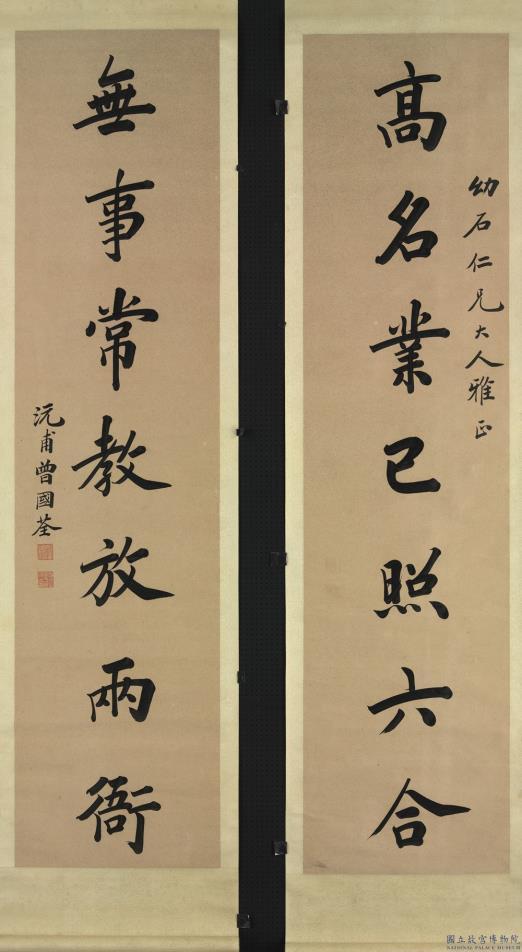 幼石仁兄大人雅正
高名業已照六合
無事常教放兩衙
沅甫曾國荃
國立故宮博物院
NATIONAL PALACE MUSEUM